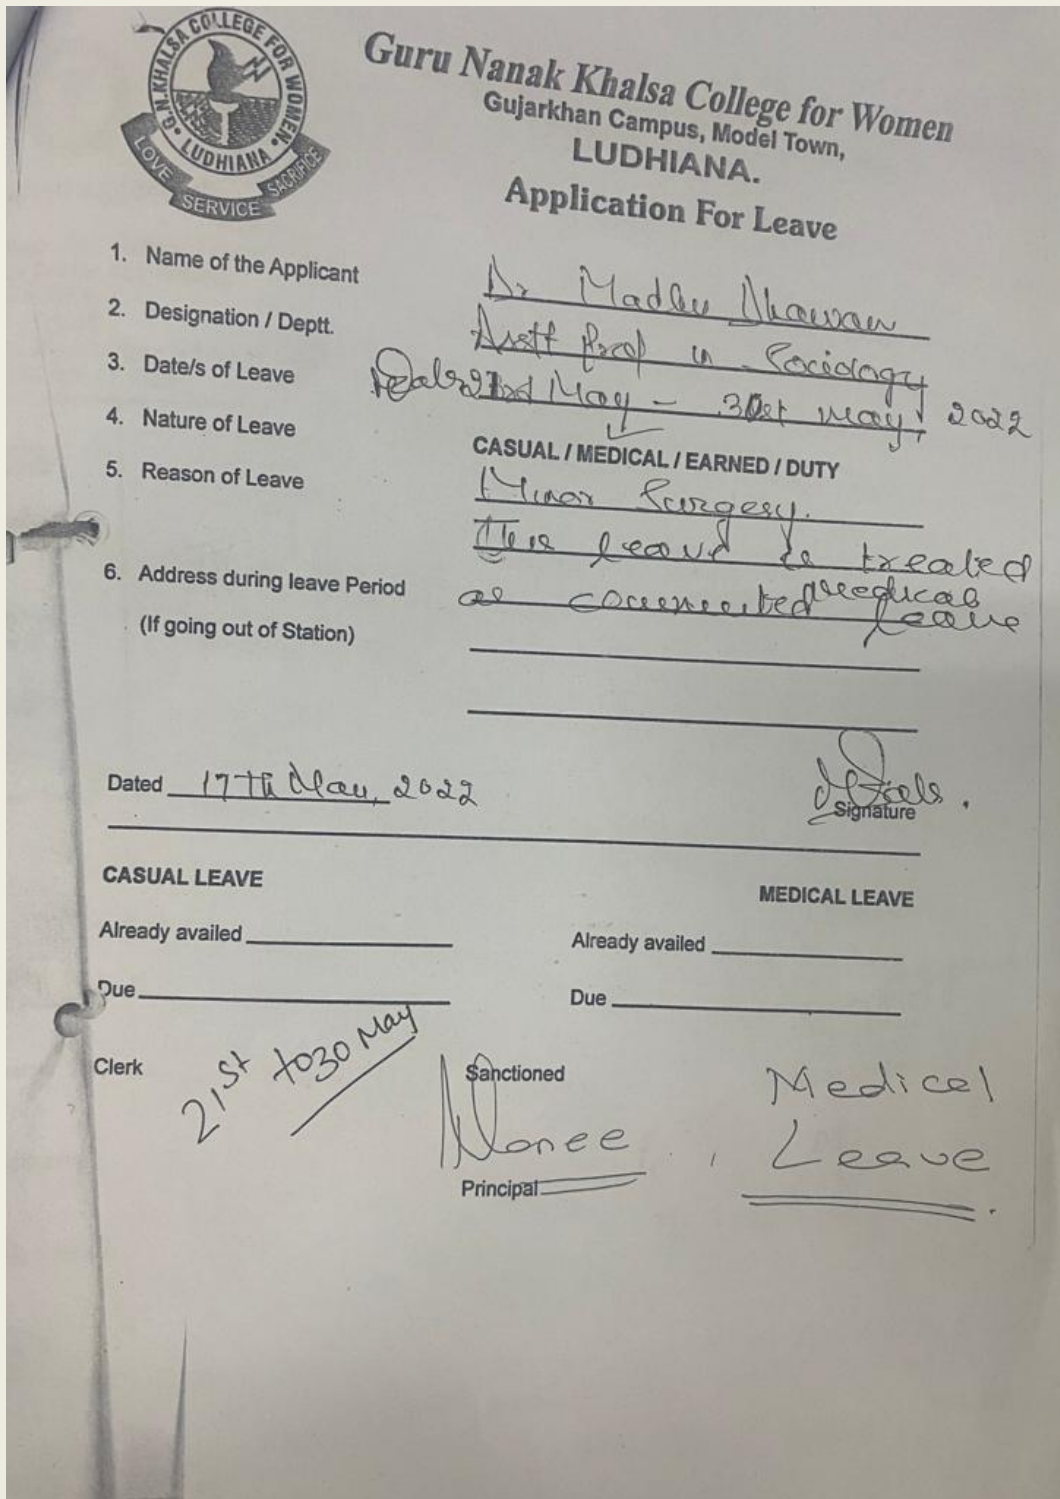 G.N.KHALSA COLLEGE FOR WOMEN. • LUDHIANA •
LOVE SERVICE SACRIFICE
Guru Nanak Khalsa College for Women
Gujarkhan Campus, Model Town,
LUDHIANA.
Application For Leave
1. Name of the Applicant Dr Madhu Dhawan
2. Designation / Deptt. Asstt Prof in Sociology
3. Date/s of Leave May - 30st May, 2022
4. Nature of Leave CASUAL / MEDICAL / EARNED / DUTY
5. Reason of Leave Minor Surgery.
This leave is treated
as commuted Medical
leave
6. Address during leave Period
(If going out of Station)
Dated 17th May, 2022
Signature
CASUAL LEAVE MEDICAL LEAVE
Already availed Already availed
Due Due
Clerk 21st to 30 May Sanctioned Medical
Leave
Principal